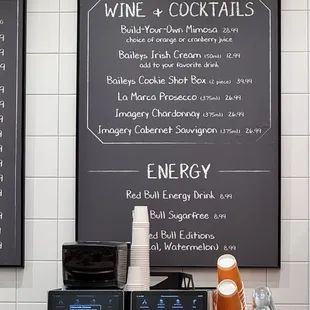 WINE + COCKTAILS
Build-Your-Own Mimosa 28.99
choice of orange or cranberry juice
Baileys Irish Cream (50ml) 12.99
add to your favorite drink
Baileys Cookie Shot Box (2 piece) 39.99
La Marca Prosecco (375ml) 26.99
Imagery Chardonnay (375ml) 26.99
Imagery Cabernet Sauvignon (375ml) 26.99
ENERGY
Red Bull Energy Drink 8.99
Bull Sugarfree 8.99
ed Bull Editions
al, Watermelon) 8.99